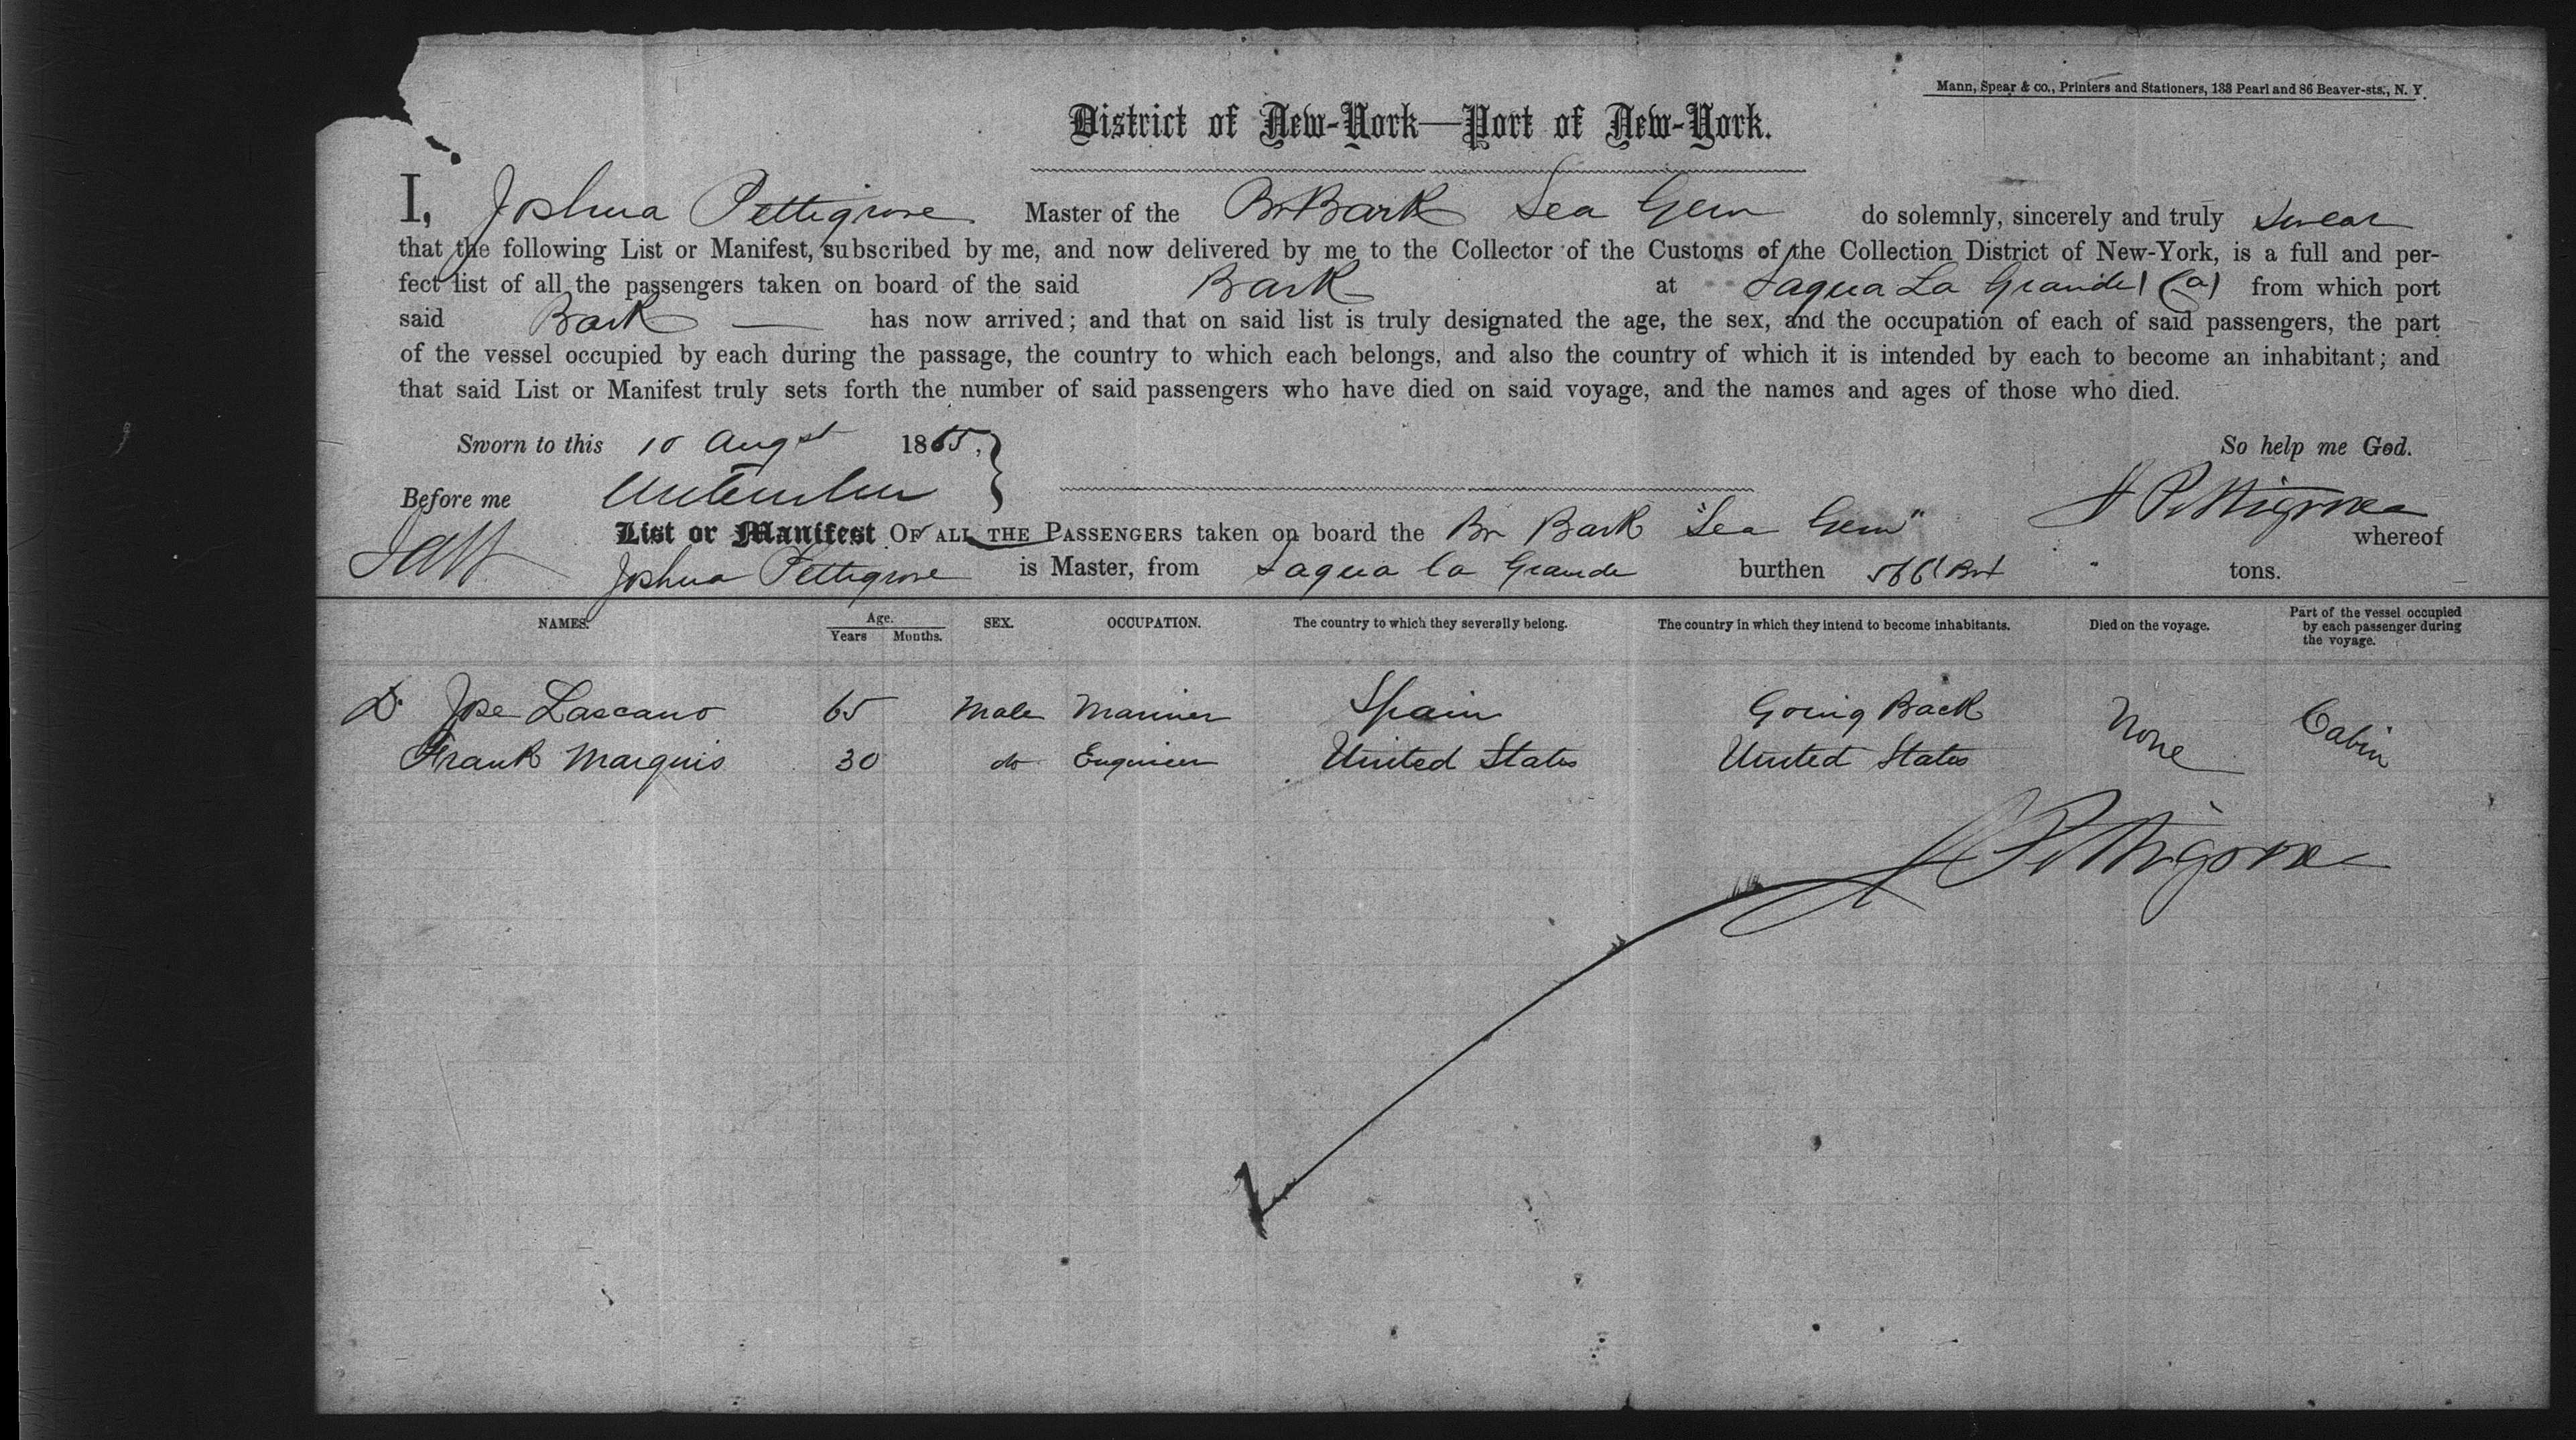 Mann, Spear & co., Printers and Stationers, 133 Pearl and 86 Beaver-sts., N. Y.
District of New-York—Port of New-York.
I, Joshua Pettigrove Master of the Br Bark Sea Gem do solemnly, sincerely and truly swear
that the following List or Manifest, subscribed by me, and now delivered by me to the Collector of the Customs of the Collection District of New-York, is a full and per-
fect list of all the passengers taken on board of the said Bark at Sagua La Grande from which port
said Bark — has now arrived; and that on said list is truly designated the age, the sex, and the occupation of each of said passengers, the part
of the vessel occupied by each during the passage, the country to which each belongs, and also the country of which it is intended by each to become an inhabitant; and
that said List or Manifest truly sets forth the number of said passengers who have died on said voyage, and the names and ages of those who died.
Sworn to this 10 Augst 1865, So help me God.
Before me
J Pettigrove
List or Manifest OF ALL THE PASSENGERS taken on board the Br Bark "Sea Gem" whereof
Joshua Pettigrove is Master, from Sagua la Grande burthen tons.
NAMES. Age. Years Months. SEX. OCCUPATION. The country to which they severally belong. The country in which they intend to become inhabitants. Died on the voyage. Part of the vessel occupied by each passenger during the voyage.
D. Jose Lascano 65 Male Mariner Spain Going Back None Cabin
Frank Marquis 30 do Engineer United States United States
J Pettigrove